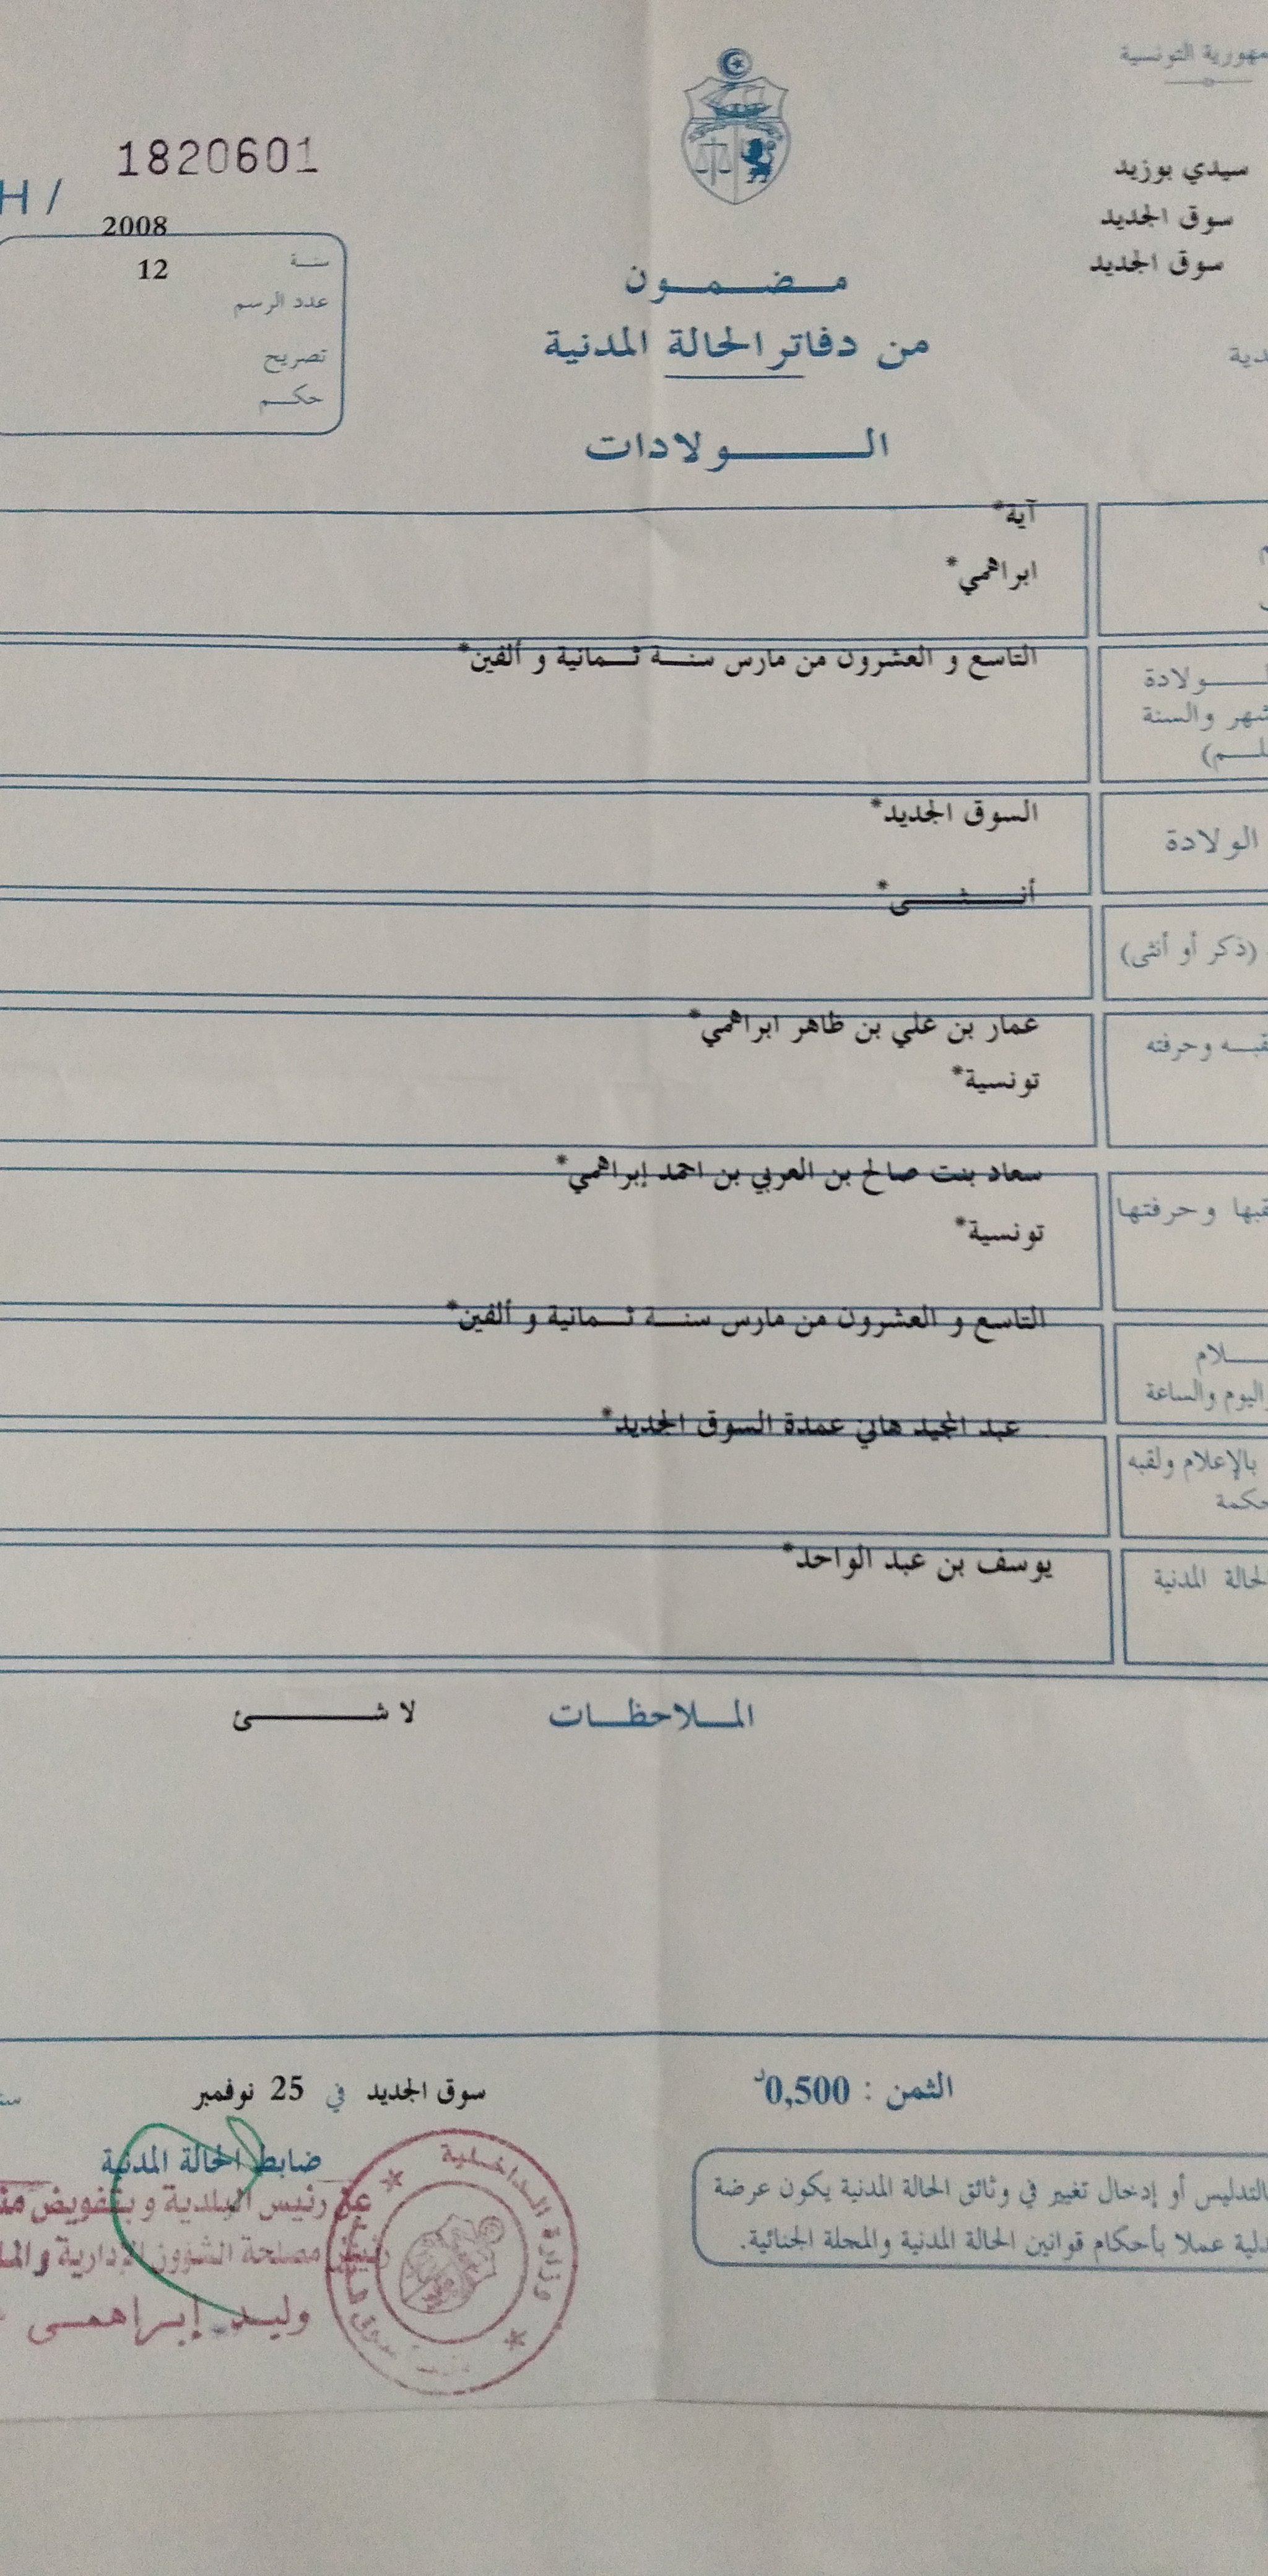 التونسية
سيدي بوزيد
سوق الجديد
سوق الجديد
H /
1820601
2008
سنة
12
عدد الرسم
تصريح
حكم
مضمون
من دفاتر الحالة المدنية
الولادات
آية*
ابراهمي*
الولادة
التاسع و العشرون من مارس سنة ثمانية و ألفين*
والسنة
الولادة
السوق الجديد*
أنثى*
(ذكر أو أنثى)
وحرفته
عمار بن علي بن ظاهر ابراهمي*
تونسية*
وحرفتها
سعاد بنت صالح بن العربي بن احمد إبراهمي*
تونسية*
التاسع و العشرون من مارس سنة ثمانية و ألفين*
واليوم والساعة
بالإعلام ولقبه
عبد المجيد هاني عمدة السوق الجديد*
الحالة المدنية
يوسف بن عبد الواحد*
الملاحظات
لا شئ
الثمن : 0,500د
سوق الجديد في 25 نوفمبر
ضابط الحالة المدنية
عن رئيس البلدية و بتفويض
رئيس مصلحة الشؤون الإدارية
وليد إبراهمي
وزارة الداخلية
بالتدليس أو إدخال تغيير في وثائق الحالة المدنية يكون عرضة
عملا بأحكام قوانين الحالة المدنية والمجلة الجنائية.